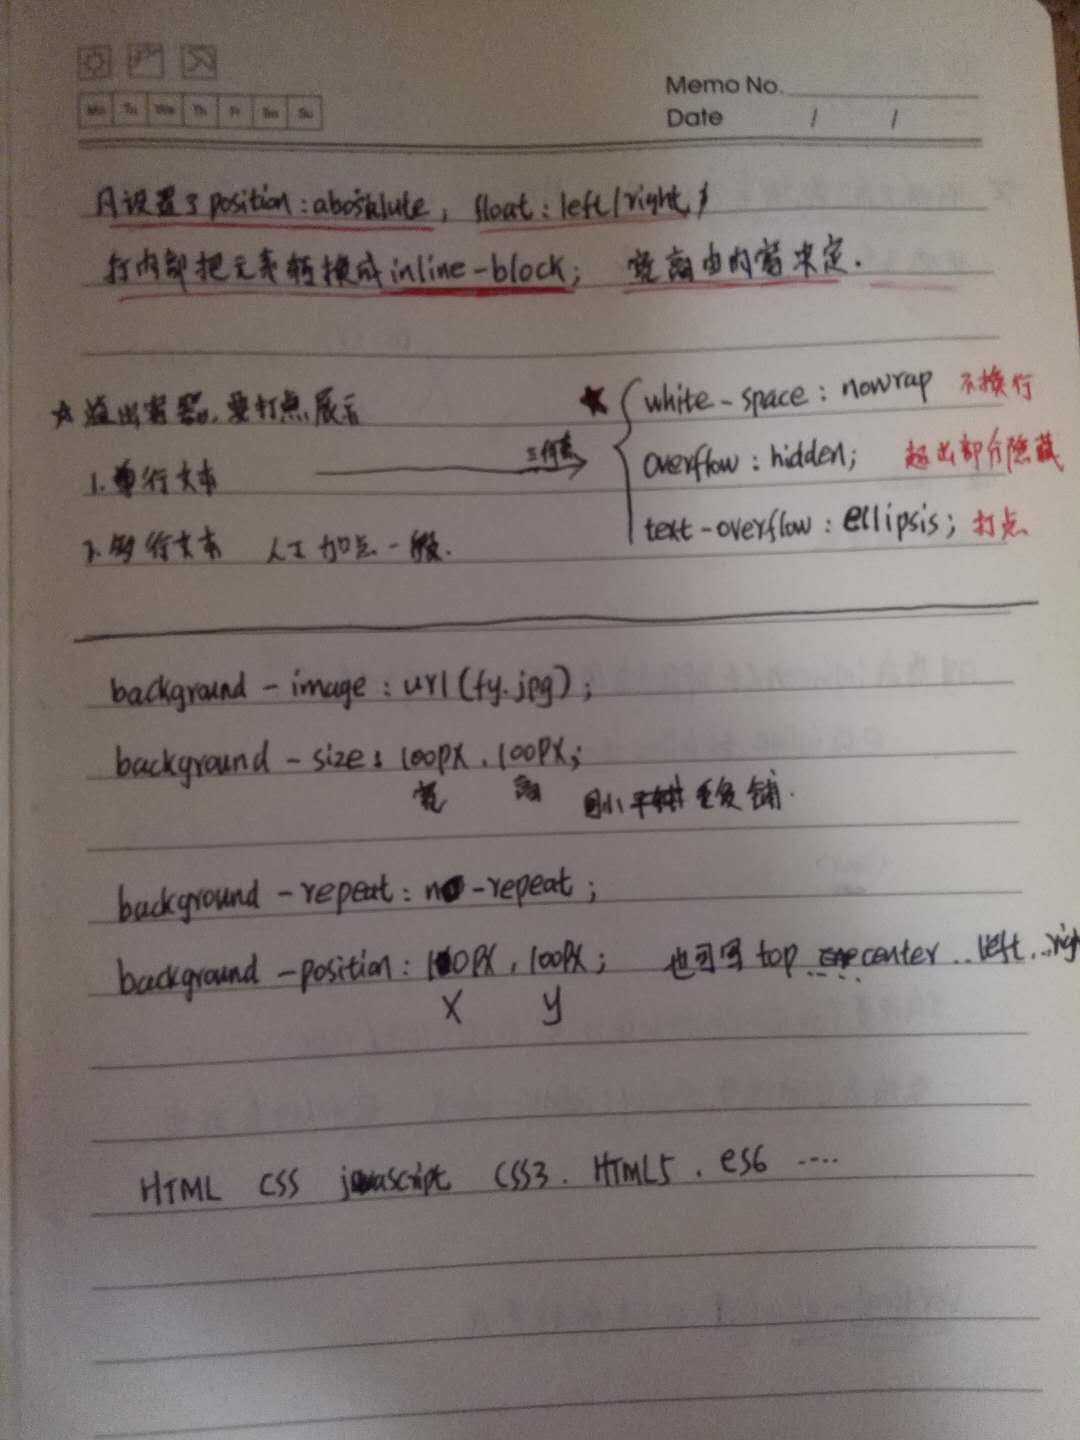 Memo No.
Mo Tu We Th Fr Sa Su
Date / /
凡设置了position:abosulute, float:left/right,
打内部把元素转换成inline-block; 宽高由内容决定.
☆溢出容器,要打点展示
1.单行文本 三件套 ★ { white-space: nowrap 不换行
overflow: hidden; 超出部分隐藏
text-overflow: ellipsis; 打点
2.多行文本 人工加点一般.
background-image: url(fy.jpg);
background-size: 100px, 100px;
宽 高 图小 重复铺.
background-repeat: no-repeat;
background-position: 100px, 100px; 也可写 top ... center .. left ... righ
X y
HTML CSS javascript CSS3. HTML5. es6 ....